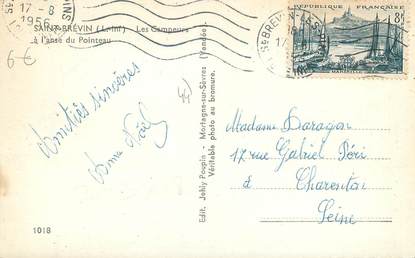 17-8
1956
ST BREVIN-LES
17
REPUBLIQUE FRANÇAISE
8F
MARSEILLE
SAINT-BREVIN (L.-Inf.) Les Campeurs
à l'anse du Pointeau
6€
Amitiés sincères
Edit. Jehly Poupin - Mortagne-sur-Sèvres (Vendée)
Véritable photo au bromure.
Madame Daragon
17 rue Gabriel Péri
à Charenton
Seine
1018